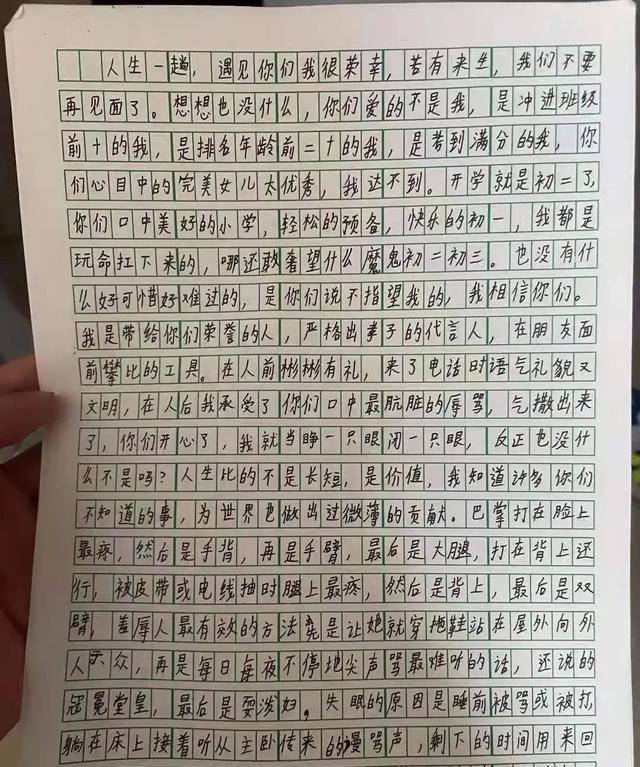 人生一趟，遇见你们我很荣幸，若有来生，我们不要
再见面了。想想也没什么，你们爱的不是我，是冲进班级
前十的我，是排名年龄前二十的我，是考到满分的我，你
们心目中的完美女儿太优秀，我达不到。开学就是初二了，
你们口中美好的小学，轻松的预备，快乐的初一，我都是
玩命扛下来的，哪还敢奢望什么魔鬼初二初三。也没有什
么好可惜好难过的，是你们说不指望我的，我相信你们。
我是带给你们荣誉的人，严格出孝子的代言人，在朋友面
前攀比的工具。在人前彬彬有礼，来了电话时语气礼貌又
文明，在人后我承受了你们口中最肮脏的辱骂，气撒出来
了，你们开心了，我就当睁一只眼闭一只眼，反正也没什
么不是吗？人生比的不是长短，是价值，我知道许多你们
不知道的事，为世界也做出过微薄的贡献。巴掌打在脸上
最疼，然后是手背，再是手臂，最后是大腿，打在背上还
行，被皮带或电线抽时腿上最疼，然后是背上，最后是双
臂，羞辱人最有效的方法是让她就穿拖鞋站在屋外向外
人示众，再是每日每夜不停地尖声骂最难听的话，还说的
冠冕堂皇，最后是耍泼妇。失眠的原因是睡前被骂或被打，
躺在床上接着听从主卧传来的谩骂声，剩下的时间用来回